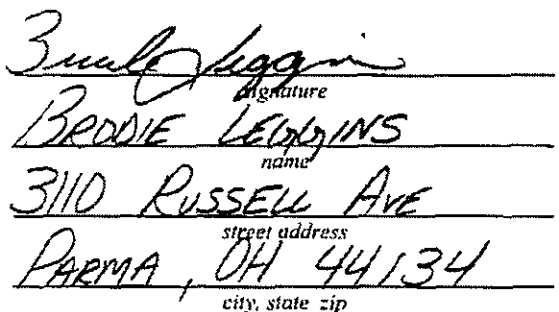 signature
BRODIE LEGGINS
name
3110 RUSSELL AVE
street address
PARMA, OH 44134
city, state zip